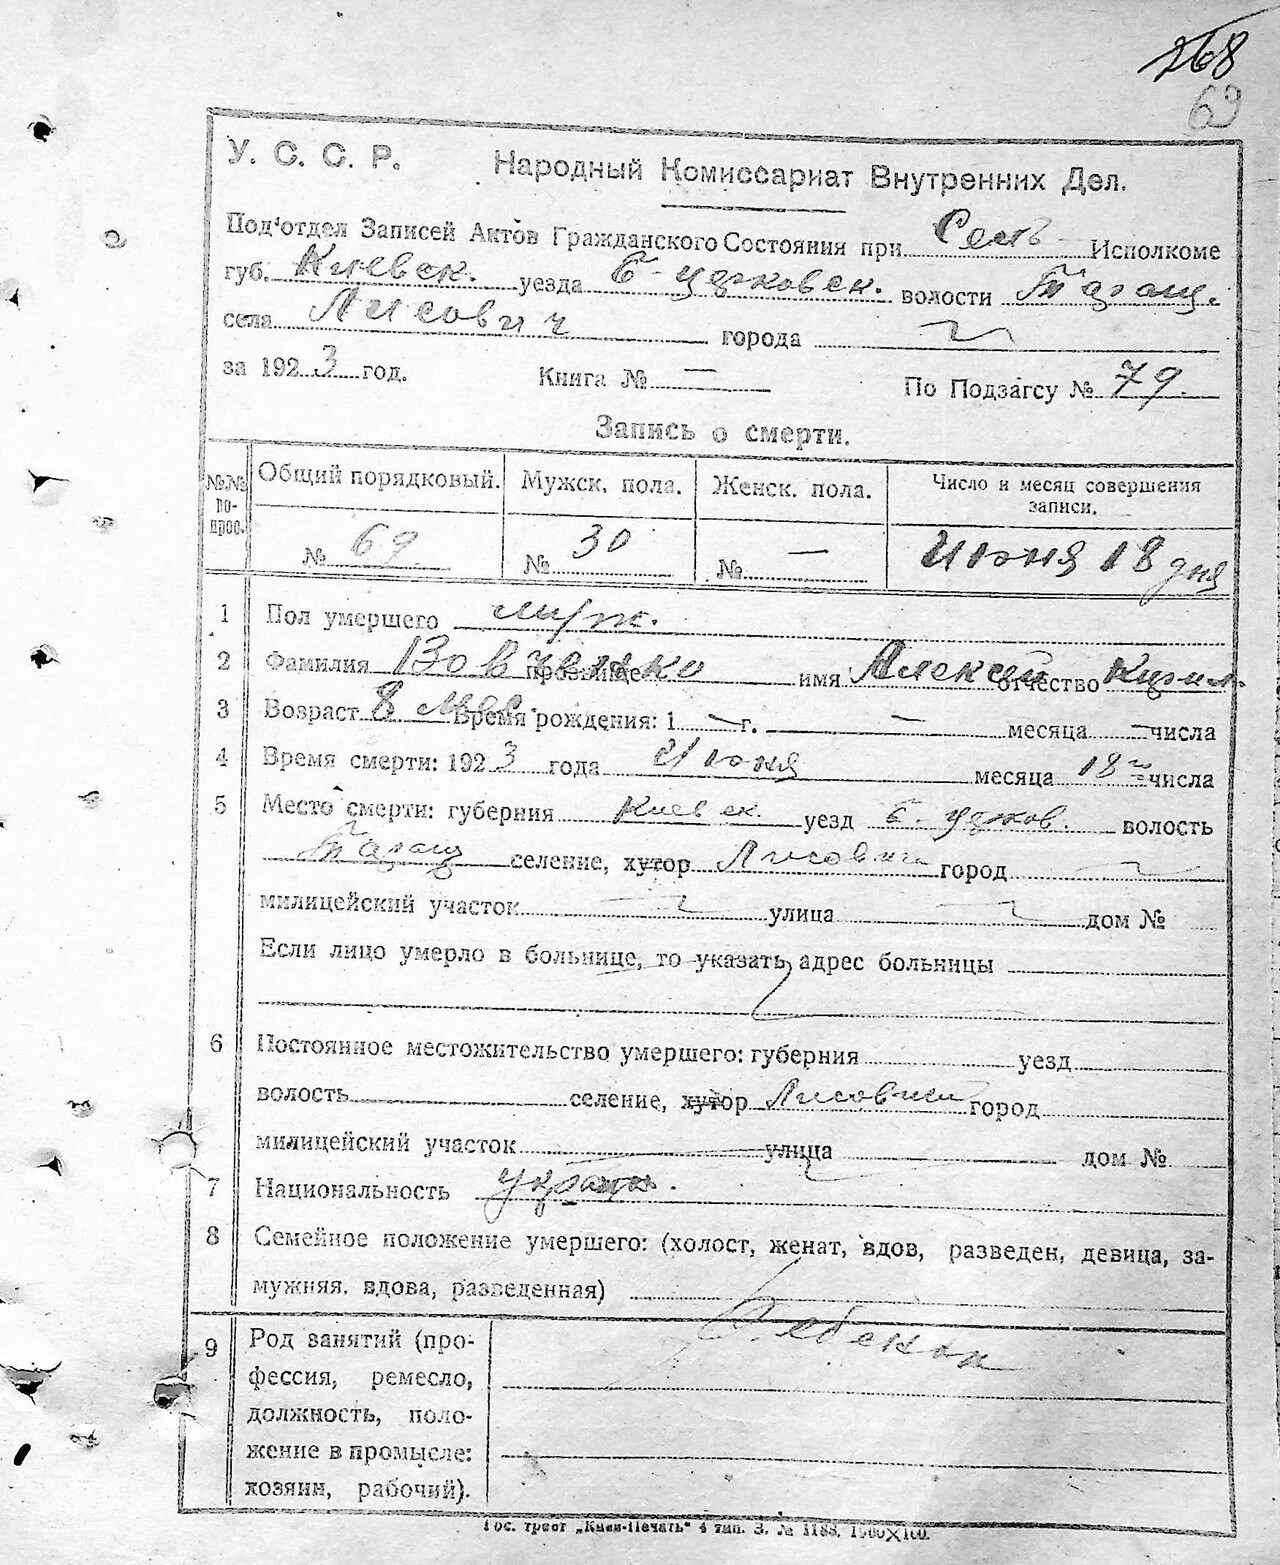 268
69
У. С. С. Р. Народный Комиссариат Внутренних Дел.
Под'отдел Записей Актов Гражданского Состояния при Сель Исполкоме
губ. Киевск. уезда Б-Церковск. волости Таращ.
села Лисович города
за 1923 год. Книга № — По Подзагсу № 79.
Запись о смерти.
№№ во-прос. Общий порядковый. Мужск. пола. Женск. пола. Число и месяц совершения записи.
№ 69 № 30 № — Июня 18 дня
1 Пол умершего муж.
2 Фамилия прозвище имя Алексей отчество
3 Возраст 8 мес. Время рождения: 1 — г. — месяца — числа
4 Время смерти: 1923 года Июня месяца 18 числа
5 Место смерти: губерния Киевск. уезд Б-Церков. волость
Таращ селение, хутор Лисовичи город
милицейский участок улица дом №
Если лицо умерло в больнице, то указать адрес больницы
6 Постоянное местожительство умершего: губерния уезд
волость селение, хутор Лисовичи город
милицейский участок улица дом №
7 Национальность украин.
8 Семейное положение умершего: (холост, женат, вдов, разведен, девица, за-
мужняя, вдова, разведенная)
Ребенок
9 Род занятий (про-
фессия, ремесло,
должность, поло-
жение в промысле:
хозяин, рабочий).
Гос. трест „Киев-Печать" 4 тип. З. № 1188. 1000×100.